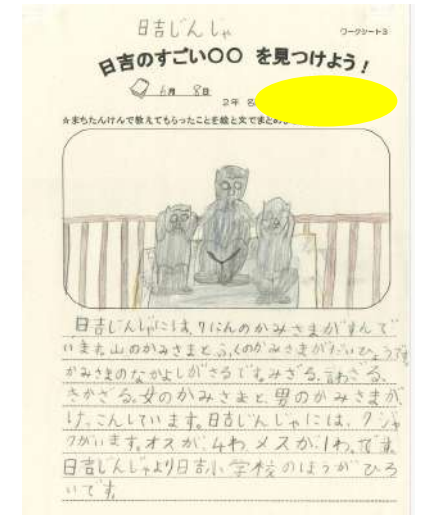 日吉じんじゃ
ワークシート3
日吉のすごい〇〇 を見つけよう！
6月 8日
2年 名
☆まちたんけんで教えてもらったことを絵と文でまとめ
日吉じんじゃには、7にんのかみさまがすんで
います。山のかみさまと、ふくのかみさまがだいひょうです。
かみさまのなかよしがさるです。みざる、言わざる、
きかざる。女のかみさまと、男のかみさまが、
けっこんしています。日吉じんじゃには、クジャ
クがいます。オスが、4わ、メスが、1わ、です。
日吉じんじゃより日吉小学校のほうがひろ
いです。